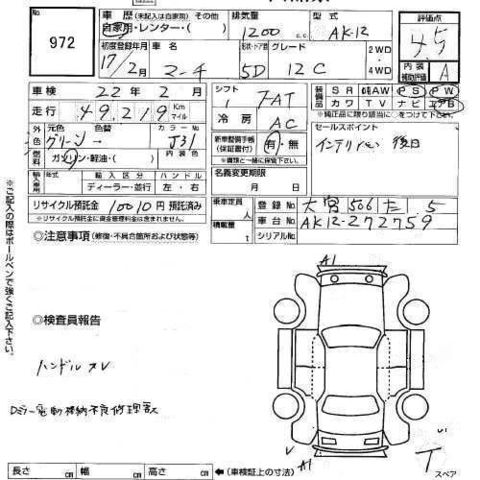 972
車 歴 (未記入は自家用) その他
自家用・レンター・( )
排気量
1200 cc
型 式
AK-12
評価点
初度登録年月
17/2月
車 名
マーチ
5D
グレード
12C
2WD
4WD
内装
補助評価
A
車検 22 年 2 月
走行 49,219 Km マイル
シフト
FAT
冷房
AC
装備品
SR AW PS PW
カワ TV ナビ エアB
*純正品に限り該当に○をつけて下さい
外色
元色
グリーン
色替
カラー No
J31
燃料
ガソリン・軽油・( )
内装色
新車整備手帳
(保証書付)
有・無
*書類と一緒に保管。
セールスポイント
インテリキー 後日
輸入車用
輸入区分
ディーラー・並行
ハンドル
左・右
名義変更期限
月 日
リサイクル預託金 10010 円 預託済み
*リサイクル預託金に資金管理料金は含まれません。
乗車定員 人
積載量
登録 No 大宮 506 た 5
車台 No AK12-272759
シリアル No
◎注意事項 (修復・不具合箇所および状態等)
※ご記入の際はボールペンで強くご記入下さい。
A1
◎検査員報告
ハンドルスレ
Dミラー電動格納不良修理要
V
A1
T
スペア
長さ cm 幅 cm 高さ cm
(車検証上の寸法)